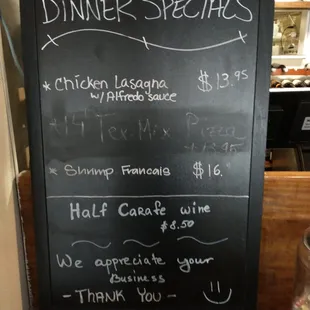 DINNER SPECIALS
* Chicken Lasagna $13.95
w/ Alfredo sauce
Tex-Mix Pizza
* Shrimp Francais $16.
Half Carafe wine
$8.50
We appreciate your
Business
- THANK YOU -